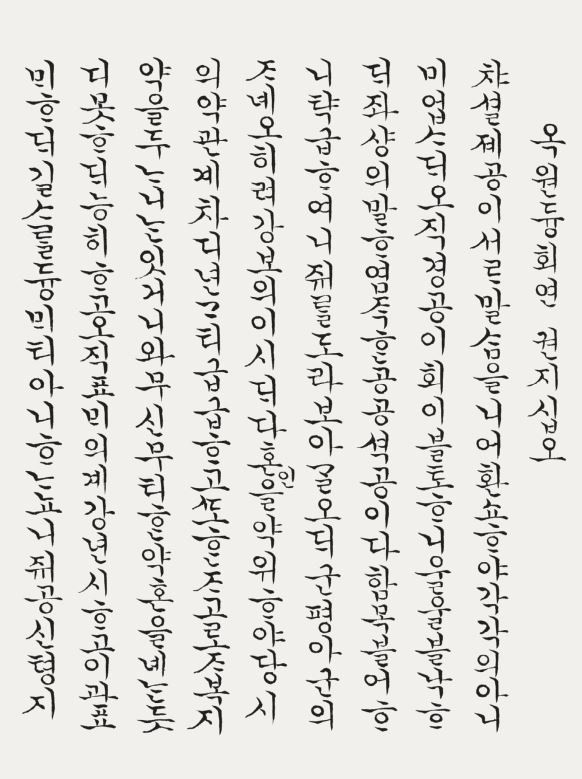 옥원듕회연 권지십오
챠셜졔공이서ᄅᆞ말ᄉᆞᆷ을니어환쇼ᄒᆞ야각각의아니
미업ᄉᆞᄃᆡ오직경공이회이블툐ᄒᆞ니울울블낙ᄒᆞ
ᄃᆡ좌샹의말ᄒᆞ염즉ᄒᆞᆫ공공셕공이다함목블어ᄒᆞ
니탹급ᄒᆞ여니쥐ᄃᆞᆯ도라보아ᄀᆞᆯ오ᄃᆡ군평아군의
ᄌᆞ녜오히려강보의이시ᄃᆡ다혼인을약위ᄒᆞ야당시
의약관계차디년ᄀᆞ티급급ᄒᆞ고ᄯᅩᄒᆞᆫᄌᆞ고로ᄌᆞ복지
약을두ᄂᆞ니ᄂᆞᆫ잇거니와무신무ᄐᆡᄒᆞᆫ약혼을녜ᄂᆞᆫ듯
디못ᄒᆞᄃᆡ능히ᄒᆞ공오직표ᄆᆡ의계강년시ᄒᆞ고이과표
ᄆᆡᄒᆞᄃᆡ길ᄉᆞᄅᆞᆯ듕ᄆᆡ티아니ᄒᆞᄂᆞ뇨니쥐공신형지